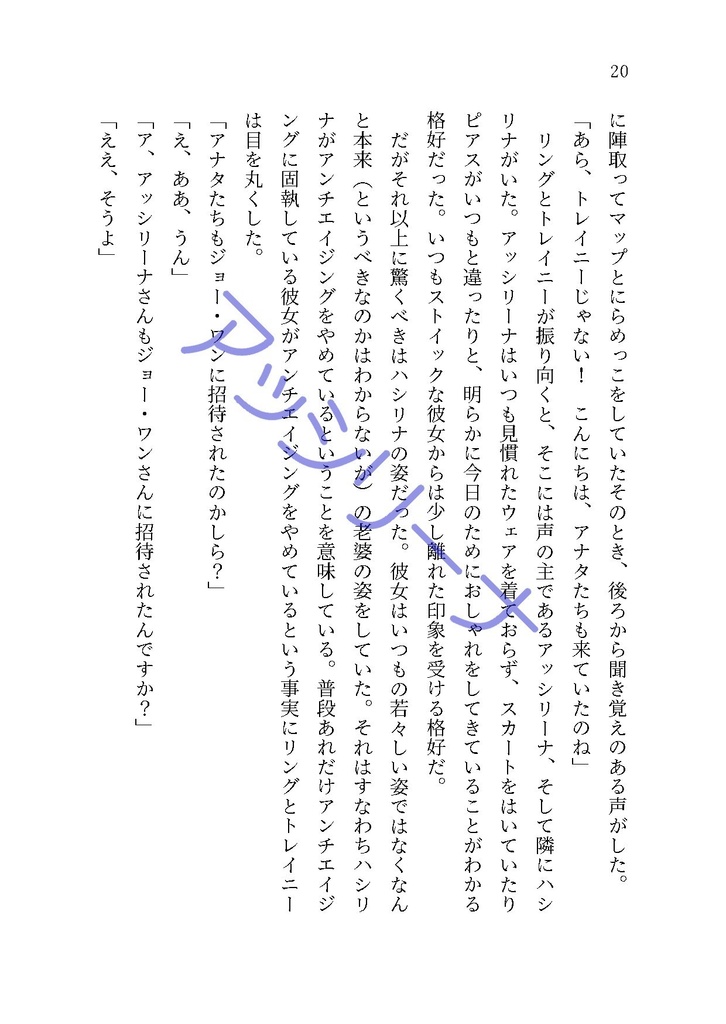 20
に陣取ってマップとにらめっこをしていたそのとき、後ろから聞き覚えのある声がした。
「あら、トレイニーじゃない!　こんにちは、アナタたちも来ていたのね」
　リングとトレイニーが振り向くと、そこには声の主であるアッシリーナ、そして隣にハシ
リナがいた。アッシリーナはいつも見慣れたウェアを着ておらず、スカートをはいていたり
ピアスがいつもと違ったりと、明らかに今日のためにおしゃれをしてきていることがわかる
格好だった。いつもストイックな彼女からは少し離れた印象を受ける格好だ。
　だがそれ以上に驚くべきはハシリナの姿だった。彼女はいつもの若々しい姿ではなくなん
と本来（というべきなのかはわからないが）の老婆の姿をしていた。それはすなわちハシリ
ナがアンチエイジングをやめているということを意味している。普段あれだけアンチエイジ
ングに固執している彼女がアンチエイジングをやめているという事実にリングとトレイニー
は目を丸くした。
「アナタたちもジョー・ワンに招待されたのかしら?」
「え、ああ、うん」
「ア、アッシリーナさんもジョー・ワンさんに招待されたんですか?」
「ええ、そうよ」
アッシリーナ